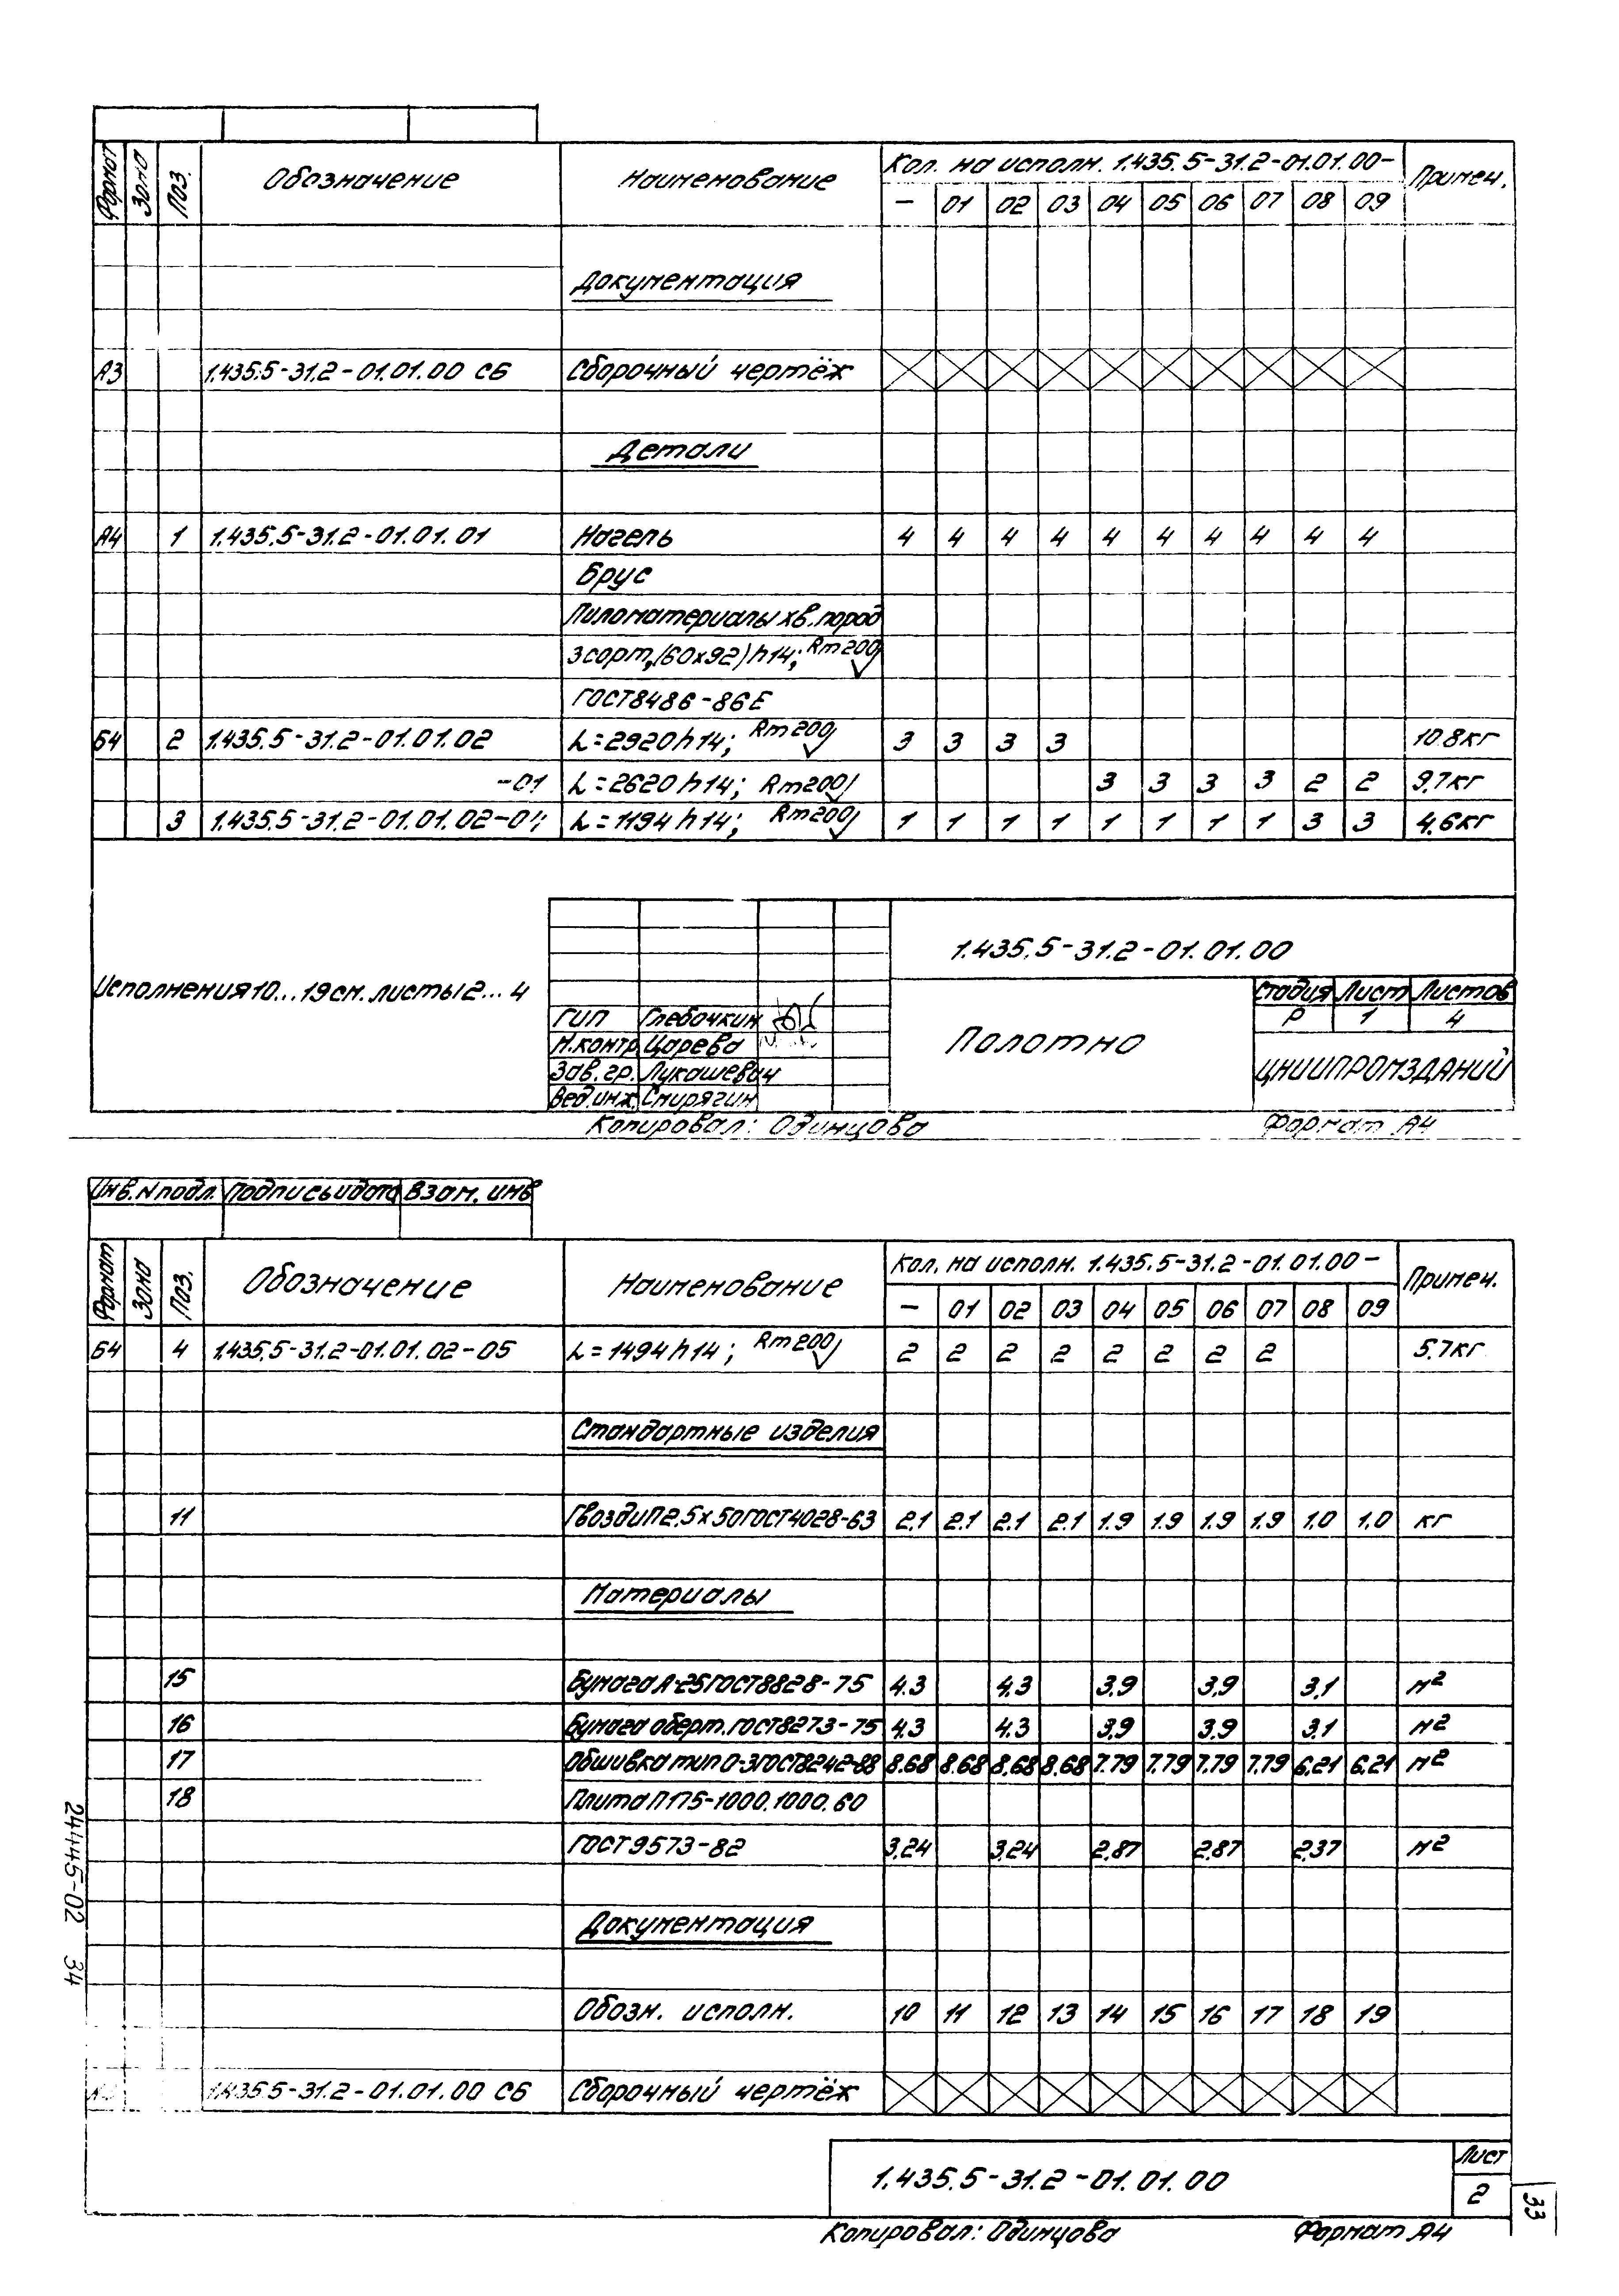 Формат Зона Поз. Обозначение Наименование Кол. на исполн. 1.435.5-31.2-01.01.00- Примеч.
— 01 02 03 04 05 06 07 08 09
Документация
А3 1.435.5-31.2-01.01.00 СБ Сборочный чертёж
Детали
А4 1 1.435.5-31.2-01.01.01 Нагель 4 4 4 4 4 4 4 4 4 4
Брус
Пиломатериалы хв. пород
3 сорт, (60х92) h14; Rm 200
ГОСТ 8486-86Е
Б4 2 1.435.5-31.2-01.01.02 L=2920 h14; Rm 200 3 3 3 3 10.8кг
-01 L=2620 h14; Rm200 3 3 3 3 2 2 9,7кг
3 1.435.5-31.2-01.01.02- L=1194 h14; Rm200 1 1 1 1 1 1 1 1 3 3 4,6кг
Исполнения 10...19 см. листы 2...4
1.435.5-31.2-01.01.00
ГИП Глебочкин
Н.контр Царева
Зав. гр. Лукашевич
Вед.инж. Смирягин
Полотно
Стадия Лист Листов
Р 1 4
ЦНИИПРОМЗДАНИЙ
Копировал: Одинцова Формат А4
Инв. N подл. Подпись и дата Взам. инв
Формат Зона Поз. Обозначение Наименование Кол. на исполн. 1.435.5-31.2-01.01.00- Примеч.
— 01 02 03 04 05 06 07 08 09
Б4 4 1.435.5-31.2-01.01.02-05 L=1494 h14; Rm 200 2 2 2 2 2 2 2 2 5.7кг
Стандартные изделия
11 Гвозди П 2,5х50 ГОСТ 4028-63 2,1 2.1 2.1 2.1 1.9 1.9 1.9 1.9 1.0 1.0 кг
Материалы
15 Бумага А-25 ГОСТ 8828-75 4.3 4.3 3.9 3,9 3,1 м²
16 Бумага оберт. ГОСТ 8273-75 4,3 4.3 3,9 3.9 3.1 м²
17 Обшивка тип О-3 ГОСТ 8242-88 8.68 8.68 8.68 8.68 7.79 7.79 7.79 7.79 6.21 6.21 м²
18 Плита П175-1000.1000.60
ГОСТ 9573-82 3,24 3,24 2.87 2.87 2.37 м²
Документация
Обозн. исполн. 10 11 12 13 14 15 16 17 18 19
1.435.5-31.2-01.01.00 СБ Сборочный чертёж
24445-02 34
1.435.5-31.2-01.01.00
Лист
2
33
Копировал: Одинцова Формат А4